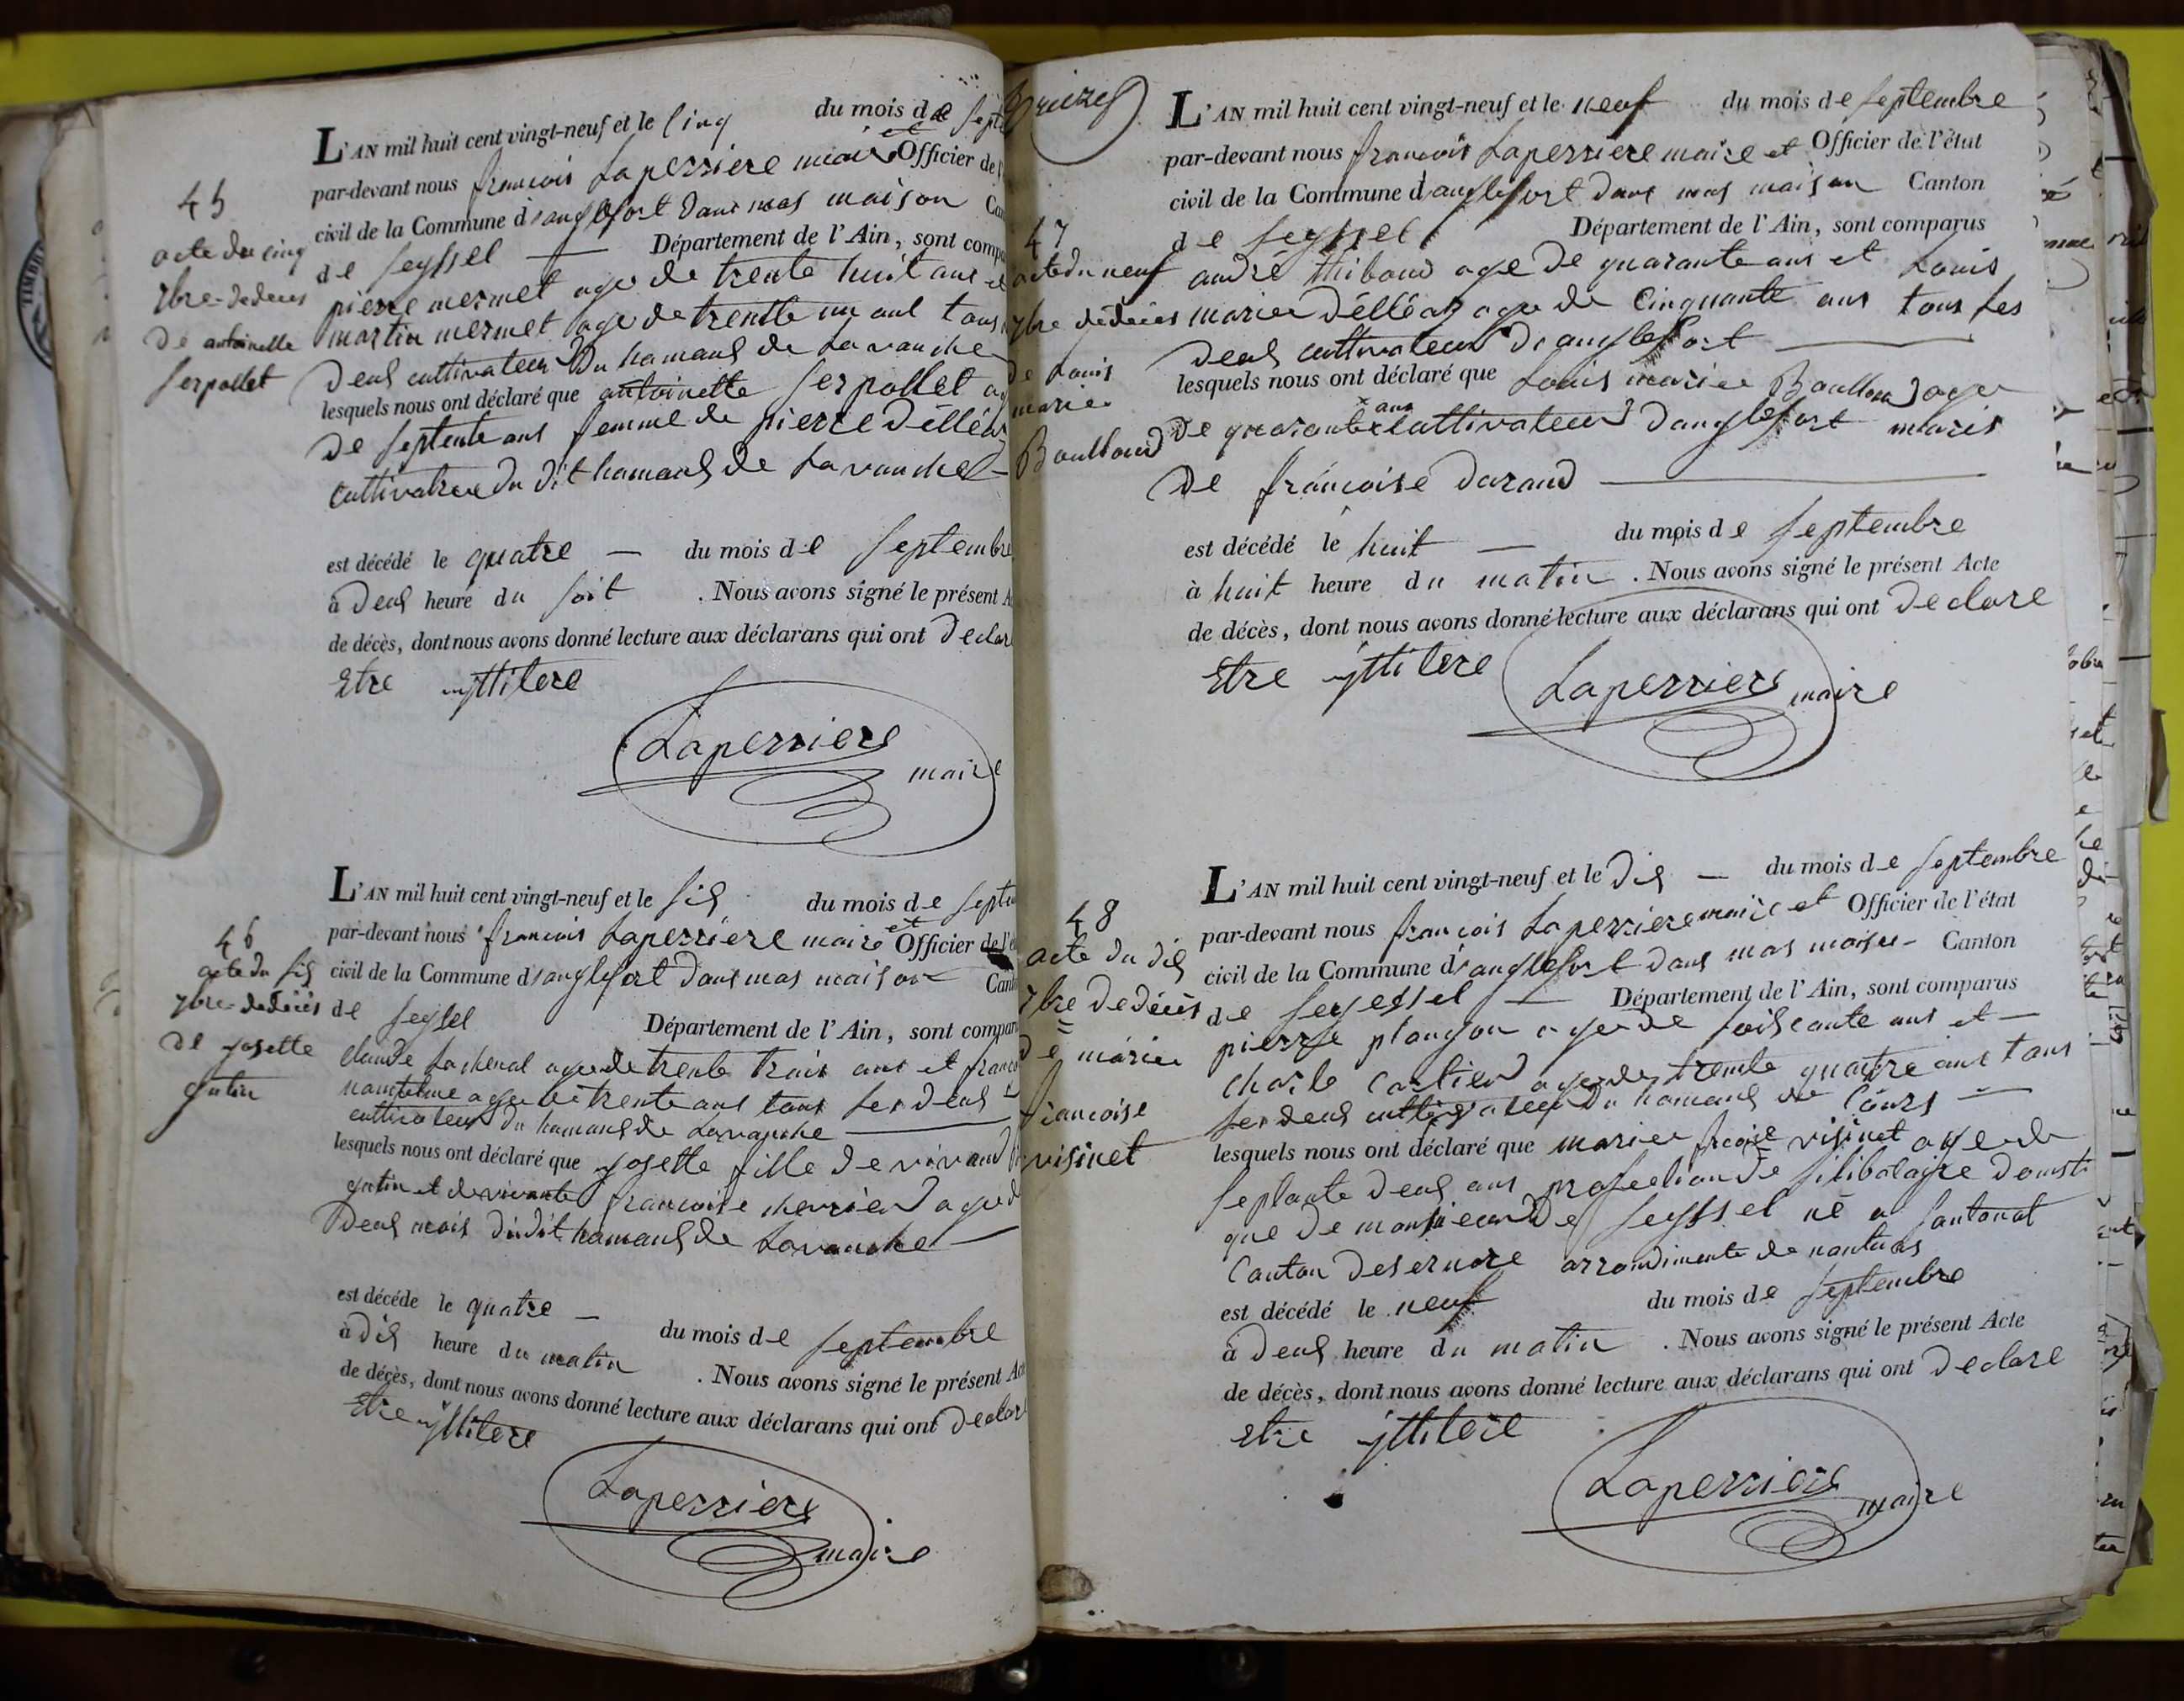 45
acte du cinq
7bre de deces
de antoinette
Serpollet
L'AN mil huit cent vingt-neuf et le cinq du mois de Sept
par-devant nous francois Laperriere maire et Officier de l'
civil de la Commune d'anglefort dans mas maison Ca
de Seyssel — Département de l'Ain, sont compa
pierre mermet age de trente huit ans et
martin mermet age de trentte un ans tous
deus cultivateur du hamaus de Lavanche
lesquels nous ont déclaré que antoinette Serpollet ag
de septente ans femme de pierre Délléa
Cultivatrice du dit hamaus de Lavanche —
est décédé le quatre — du mois de Septembre
à deus heure du soit . Nous avons signé le présent A
de décès, dont nous avons donné lecture aux déclarans qui ont declar
Etre ytlitere
Laperriere
maire
46
acte du sis
7bre de deces
de josette
gutin
L'AN mil huit cent vingt-neuf et le sis du mois de Septem
par-devant nous francois Laperriere maire et Officier de l'é
civil de la Commune d'anglefort dans mas maison Canto
de Seysel Département de l'Ain, sont compar
claude Lachenal age de trente trois ans et franco
age de trente ans tous les deus
cultivateur du hamaus de Lavanche —
lesquels nous ont déclaré que josette fille de vivand
gutin et de vivante francoise age d
deus mois du dit hamaus de Lavanche —
est décéde le quatre — du mois de Septembre
à dis heure du matin . Nous avons signé le présent Ac
de décès, dont nous avons donné lecture aux déclarans qui ont declar
Etre ytlitere
Laperriere
maire
47
acte du neuf
7bre de deces
de Louis
marie
Boulloud
L'AN mil huit cent vingt-neuf et le neuf du mois de Septembre
par-devant nous francois Laperriere maire et Officier de l'état
civil de la Commune d'anglefort dans mas maison Canton
de Seyssel Département de l'Ain, sont comparus
andré thiboud age de quarante ans et Louis
marie Délléaz age de Cinquante ans tous les
deus cultivateur d'anglefort —
lesquels nous ont déclaré que Louis marie Boulloud age
de quarante ans Cultivateur d'anglefort maris
de francoise Durand —
est décédé le huit — du mois de Septembre
à huit heure du matin . Nous avons signé le présent Acte
de décès, dont nous avons donné lecture aux déclarans qui ont declare
Etre ytlitere
Laperriere
maire
48
acte du dis
7bre de deces
de marie
francoise
visinet
L'AN mil huit cent vingt-neuf et le dis — du mois de Septembre
par-devant nous francois Laperriere maire et Officier de l'état
civil de la Commune d'anglefort dans mas maison Canton
de Seyessel — Département de l'Ain, sont comparus
pierre plançon age de soiscante ans et —
Charle Cartier age de trente quattre ans tous
les deus cultivateur du hamaus de Cours —
lesquels nous ont déclaré que marie visinet age de
Septante deus ans profection de domesti
que de monsieur de Seyssel né a
Canton arrondimente de nantuas
est décédé le neuf du mois de Septembre
à deus heure du matin . Nous avons signé le présent Acte
de décès, dont nous avons donné lecture aux déclarans qui ont declare
Etre ytlitere
Laperriere
maire